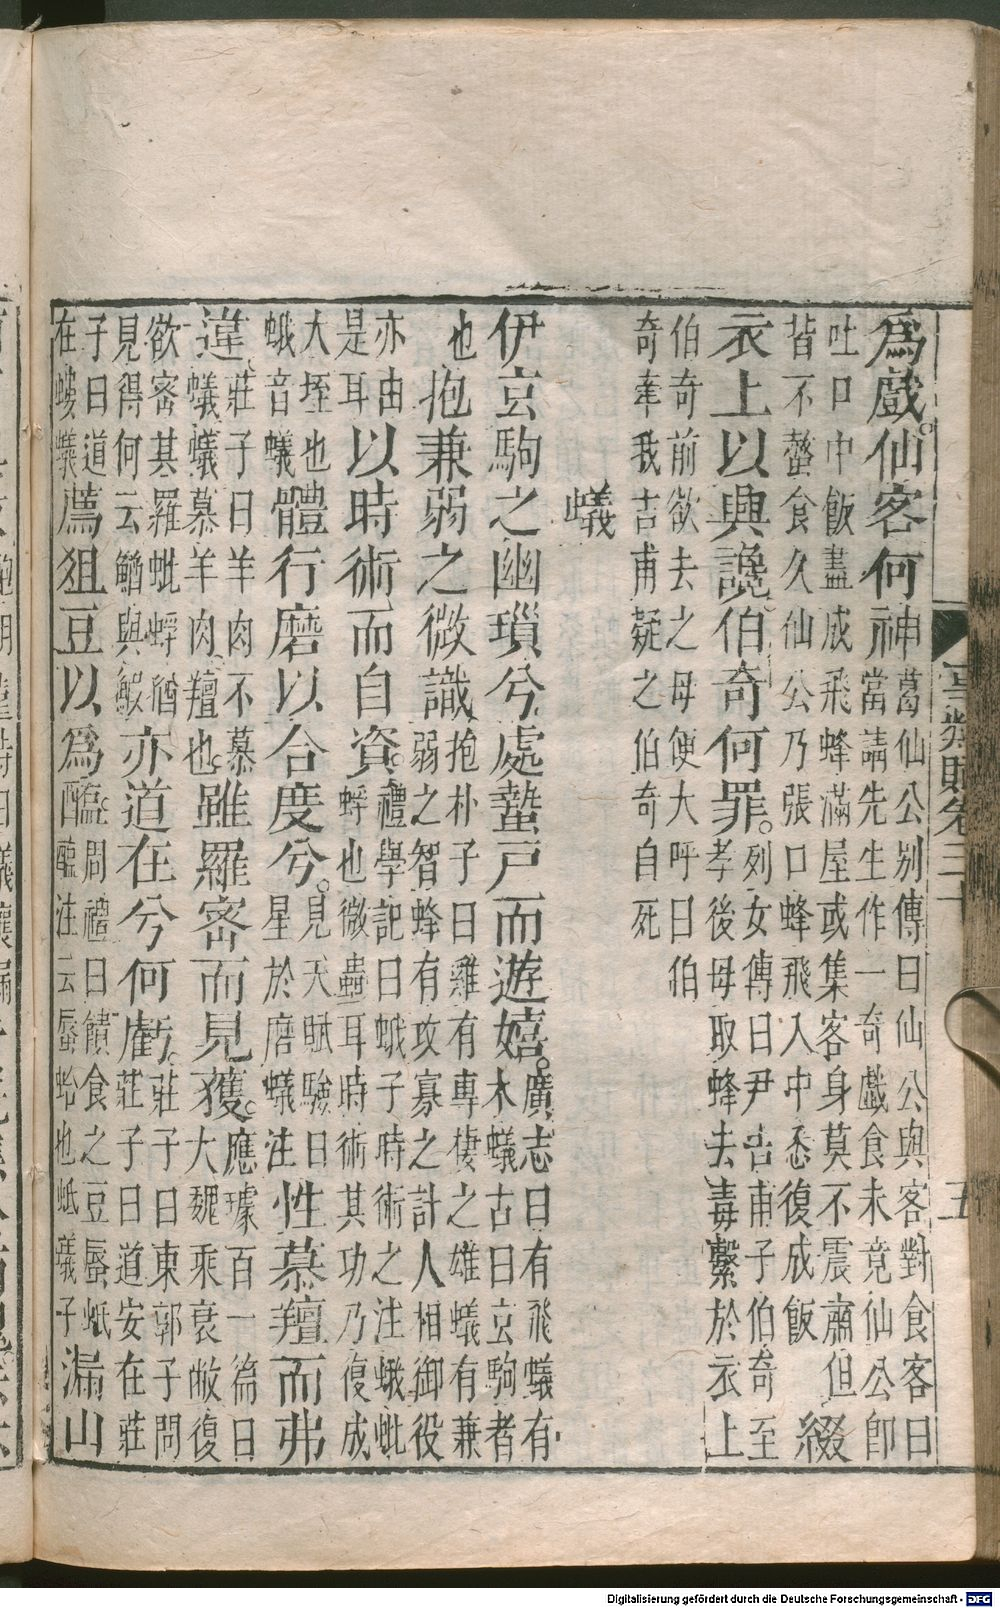 爲戲。仙客何神葛仙公别傳曰仙公與客對食客曰
當請先生作一奇戲食未竟仙公即
吐口中飯盡成飛蜂滿屋或集客身莫不震肅但
皆不螫食久仙公乃張口蜂飛入中悉復成飯綴
衣上以興讒伯奇何罪。列女傳曰尹吉甫子伯奇至
孝後母取蜂去毒繫於衣上
伯奇前欲去之母便大呼曰伯
奇牽我吉甫疑之伯奇自死
蟻
伊玄駒之幽瑣兮處蟄戶而遊嬉。廣志曰有飛蟻有
木蟻古曰玄駒者
也抱兼弱之微識抱朴子曰雞有專棲之雄蟻有兼
弱之智蜂有攻寡之計人相御役
亦由
是耳以時術而自資。禮學記曰蛾子時術之注蛾蚍
蜉也微蟲耳時術其功乃復成
大垤也
蛾音蟻體行磨以合度兮。見天賦驗曰
星於磨蟻注性慕羶而弗
違莊子曰羊肉不慕
蟻蟻慕羊肉羶也。雖羅密而見獲。應璩百一篇曰
大魏乘衰敝復
欲密其羅蚍蜉猶
見得何云鰌與鰕亦道在兮何虧。莊子曰東郭子問
莊子曰道安在莊
子曰道
在螻蟻薦狙豆以爲醢。周禮曰饋食之豆蜃蚳
醢注云蜃蛤也蚳蟻子漏山
事類賦卷三十
五
Digitalisierung gefördert durch die Deutsche Forschungsgemeinschaft - DFG